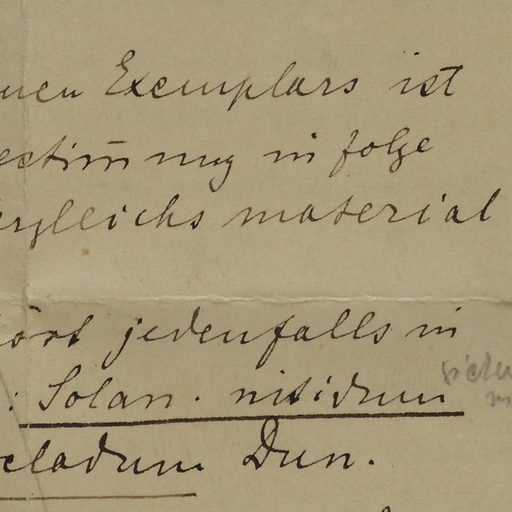 nen Exemplars ist
estim̅ung in folge
ergleichs material
hört jedenfalls in
: Solan. nitidum
cladum Dun.